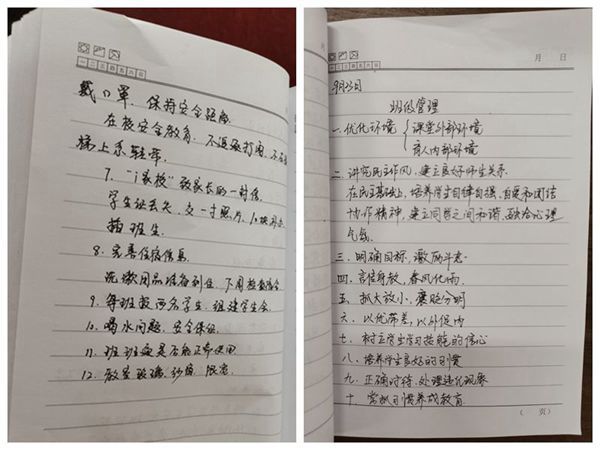 一二三四五六日
戴口罩,保持安全距离
在校安全教育,不追逐打闹,不在楼
梯上系鞋带
7. "i家校"致家长的一封信
学生证丢失,交一寸照片,10块补办
插班生
8. 完善住宿信息
洗漱用品准备到位,下周检查宿舍
9. 每班投两名学生,组建学生会
10. 喝水问题,安全保证
11. 班班通是否能正常使用
12. 教室玻璃,纱窗,
月 日
一二三四五六日
9月23日
班级管理
一.优化环境 课堂外部环境
育人内部环境
二.讲究民主作风,建立良好师生关系
在民主基础上,培养学生自律自强,自爱和团结
协作精神,建立同学之间和谐、融洽心理
气氛
三.明确目标,激励斗志
四.言传身教,春风化雨
五.抓大放小,褒贬分明
六.以优带差,以外促内
七.树立学生学习技能的信心
八.培养学生良好的习惯
九.正确对待、处理违纪现象
十.常抓习惯养成教育
( 页)